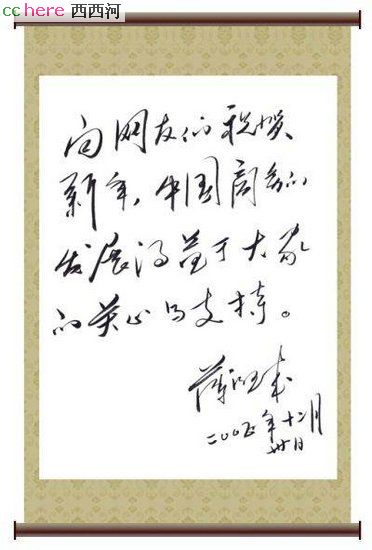 cchere 西西河
向网友们祝贺
新年，中国商务的
发展得益于大家
的关心与支持。
薄熙来
二〇〇五年十二月
卅日